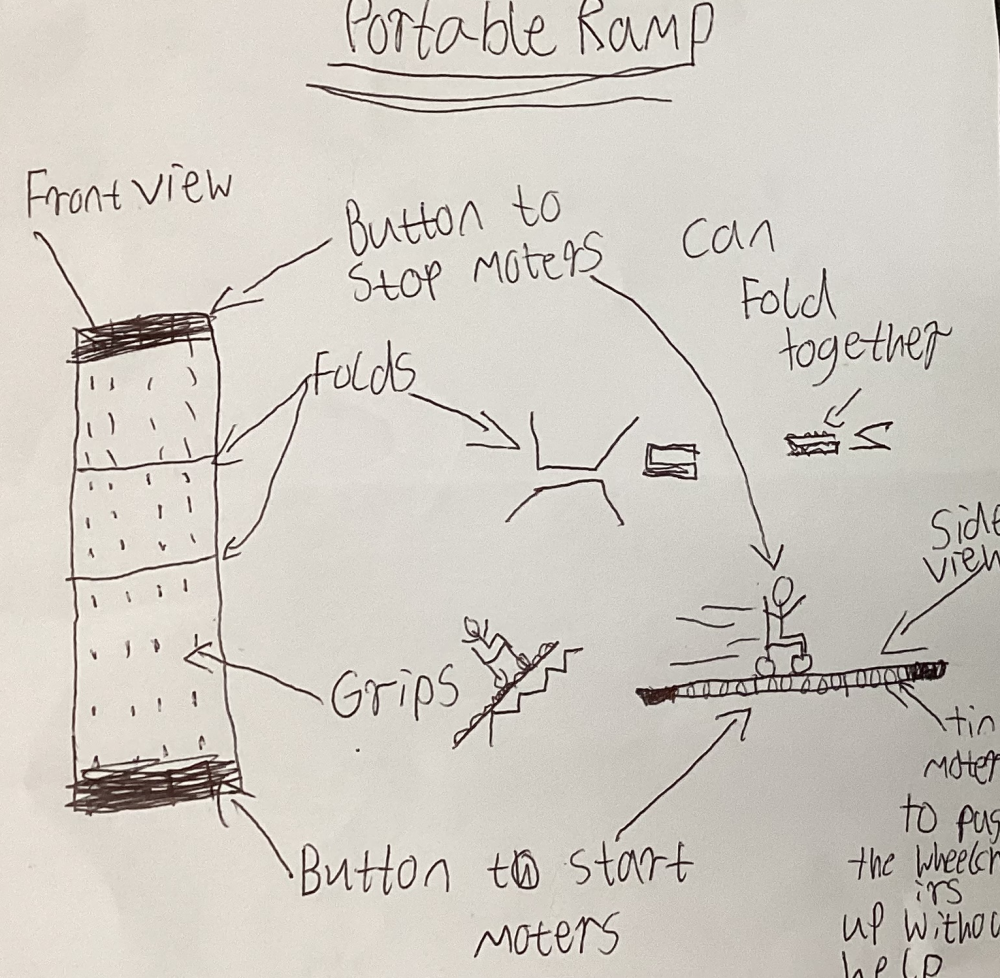 Portable Ramp
Front view
Button to
Stop moters
Can
Fold
together
Folds
Side
view
Grips
tin
moter
to pus
the wheelch
irs
up withou
help
Button to start
moters